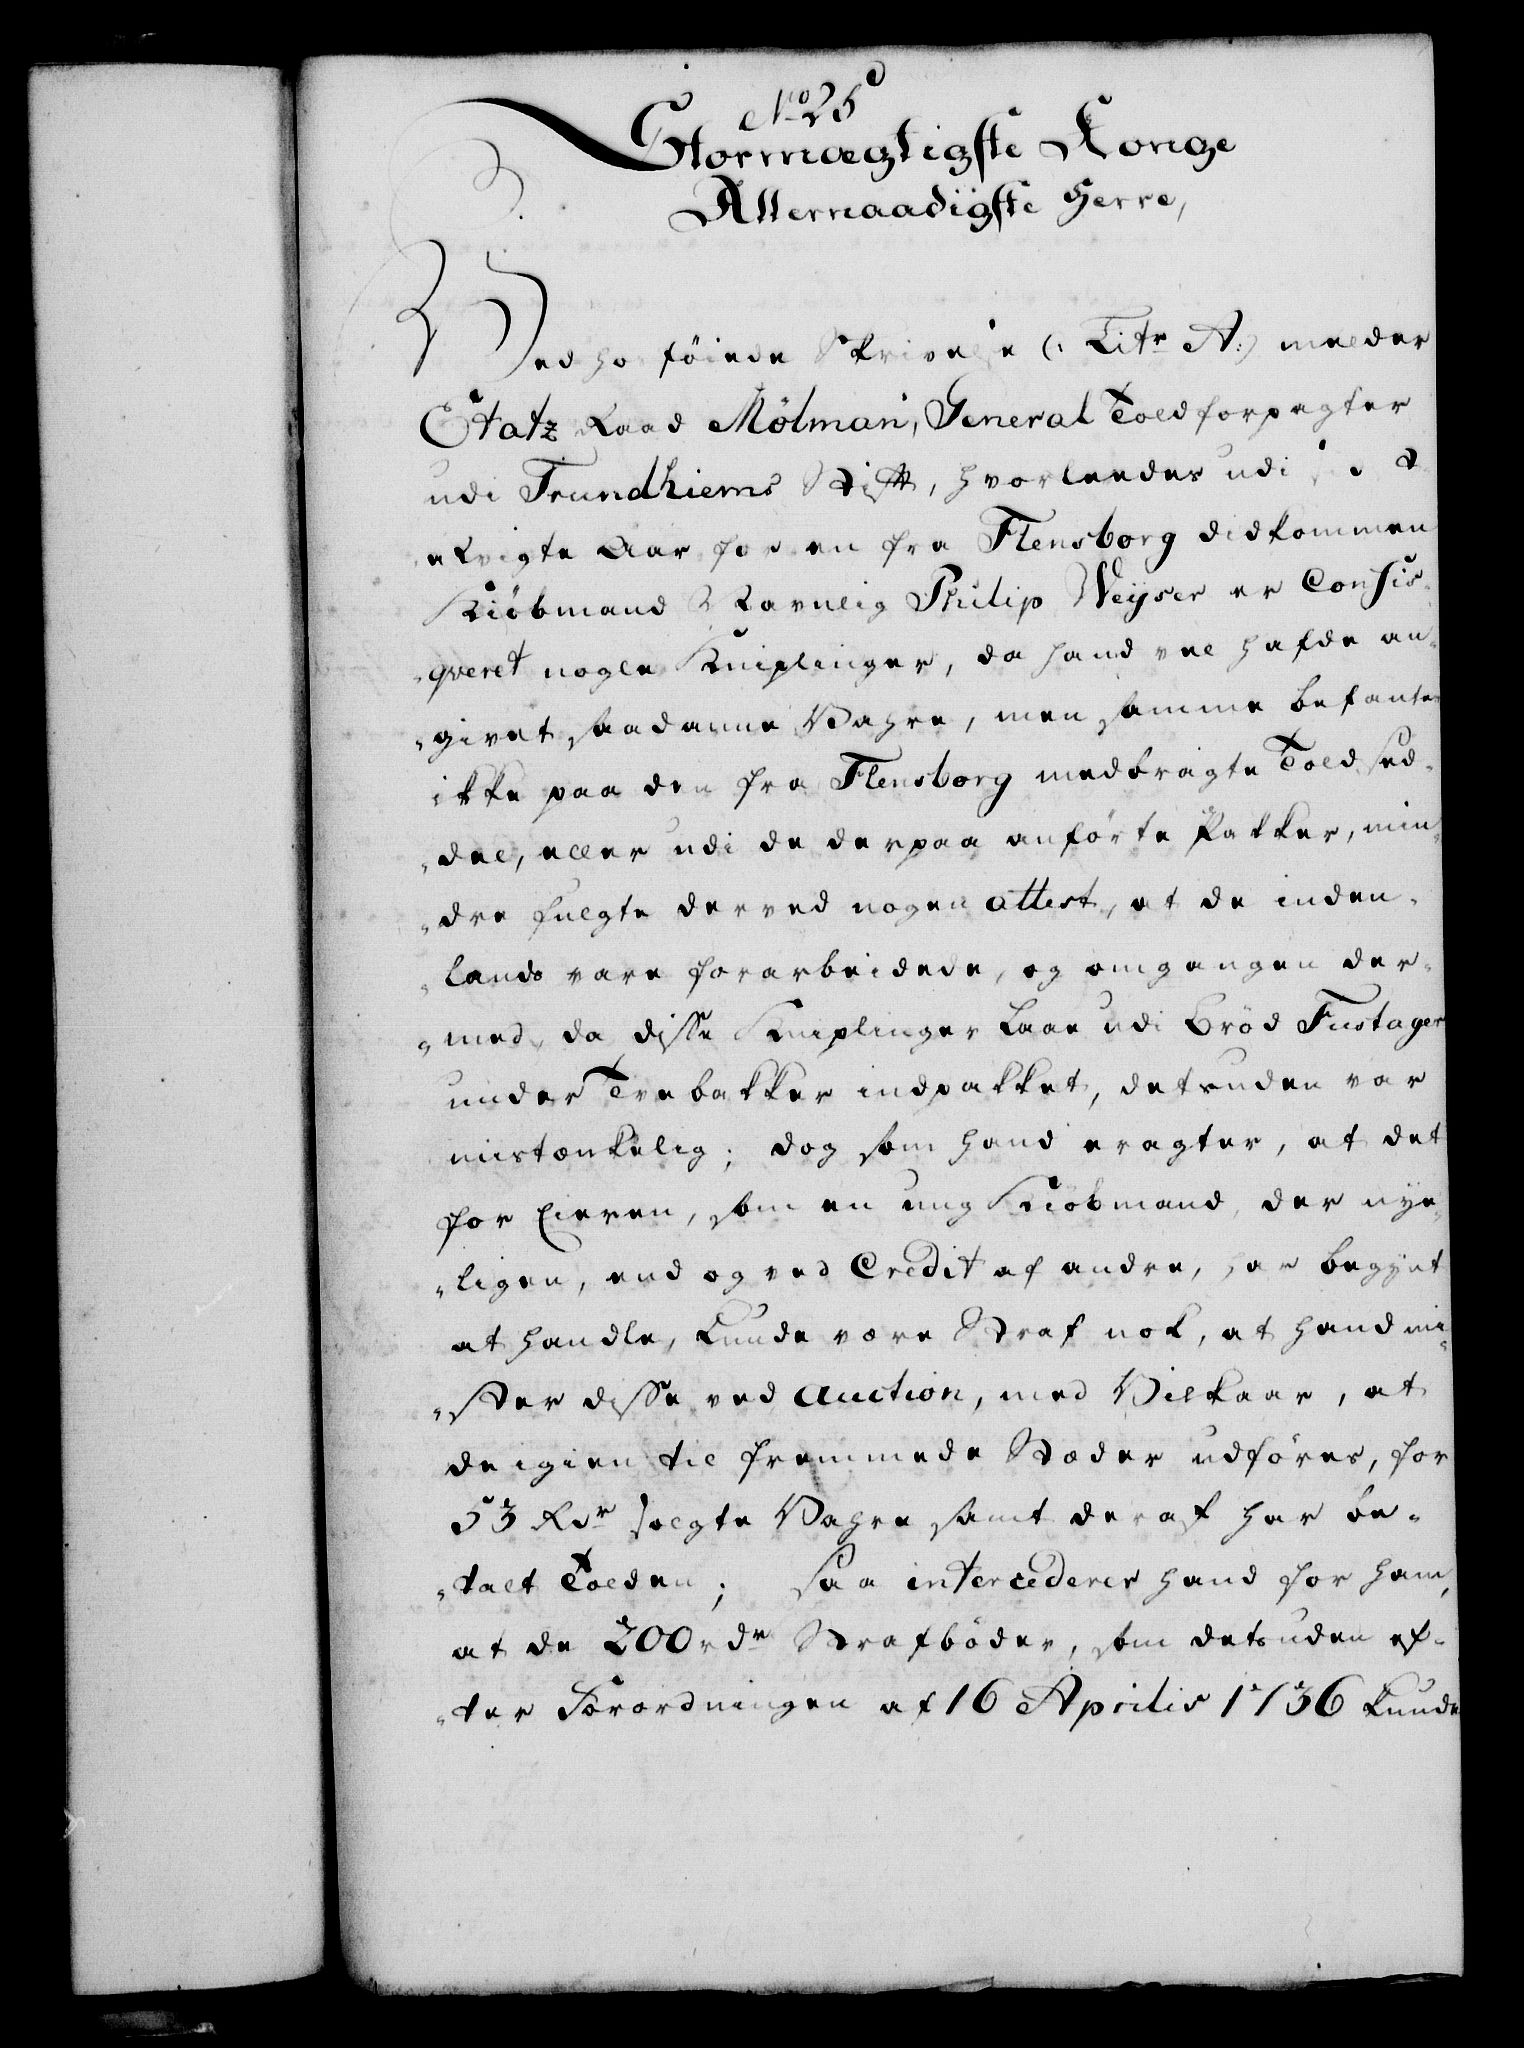 No 25
Stormægtigste Konge
Allernaadigste Herre,
Ved hosföiede Skrivelse (: Litr A:) melder
Etatz Raad Mölman, General Toldforpagter
udi Trundhiems Stift, hvorleedes udi sidst
afvigte Aar for en fra Flensborg didkommen
Kiöbmand Navnlig Philip Weyser er Confis-
qveret nogle Kniplinger, da hand vel hafde an-
givet saadanne Vahre, men samme befantes
ikke paa den fra Flensborg medbragte Toldsed-
del, eller udi de derpaa anförte Pakker, min-
dre fulgte derved nogen attest, at de inden-
lands vare forarbeidede, og omgangen der-
med, da disse Kniplinger laae udi Bröd Fustager
under Tvebakker indpakket, desuden var
mistænkelig; dog som hand eragter, at det
for Eieren, som en ung Kiöbmand, der nye-
ligen, end og ved Credit af andre, har begynt
at handle, kunde være Straf nok, at hand mi-
ster disse ved Auction, med Vilkaar, at
de igien til fremmede Stæder udföres, for
53 Rdr solgte Vahre samt deraf har be-
talt Tolden; Saa intercederer hand for ham,
at de 200 rdr Strafböder, som detsuden ef-
ter Forordningen af 16 Aprilis 1736 kunde